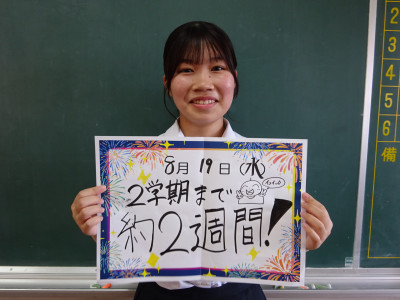 8月 19日(水)
2学期まで
約2週間!
2
3
4
5
6
備